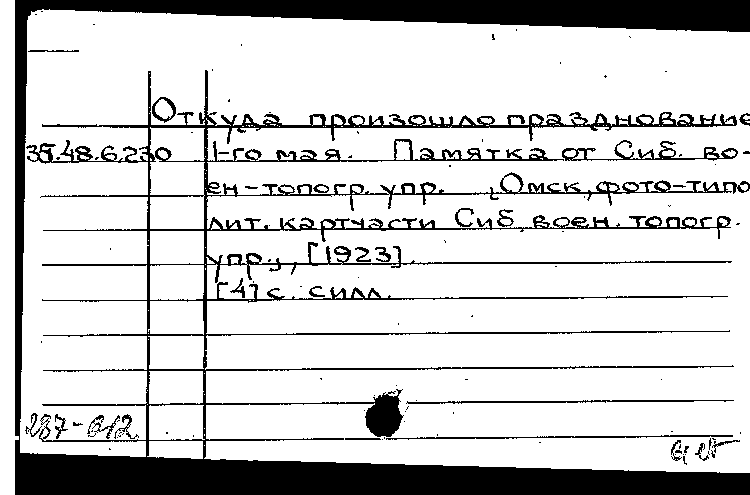 Откуда произошло празднование
35.48.6.230 1-го мая. Памятка от Сиб. во-
ен-топогр. упр. [Омск, фото-типо
лит. картчасти Сиб. воен. топогр.
упр.], [1923].
[4] с. силл.